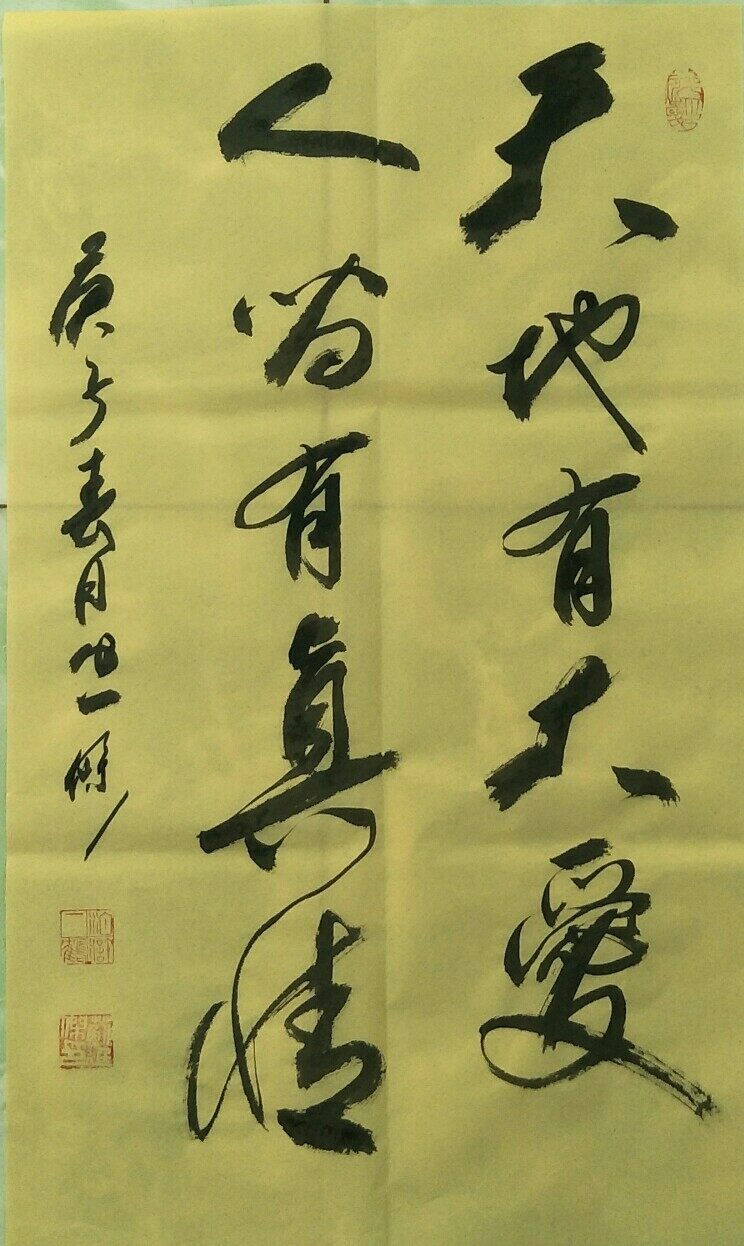 天地有大愛
人間有真情
庚子春月